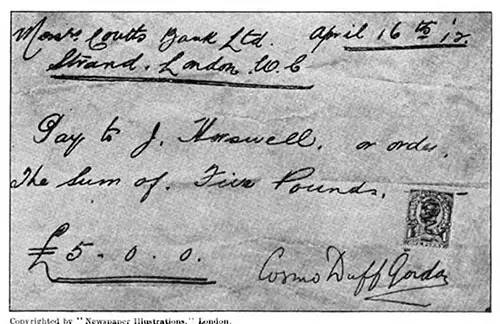 Messrs. Coutts Bank Ltd. April 16th '12
Strand. London. W.C
Pay to J. Horswell. or order.
The Sum of. Five Pounds.
£5.0.0.
Cosmo Duff Gordon
Copyrighted by "Newspaper Illustrations," London.